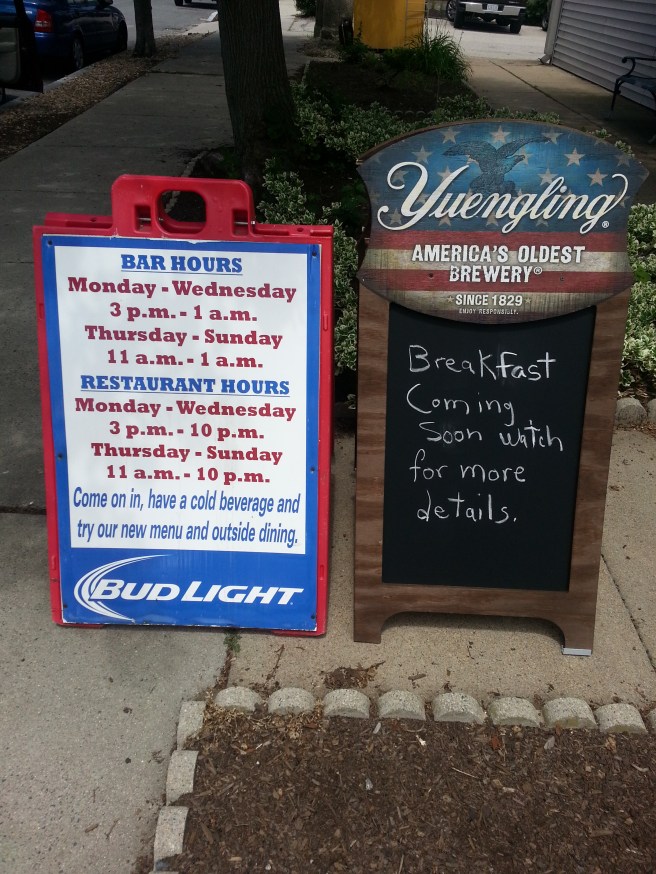 BAR HOURS
Monday - Wednesday
3 p.m. - 1 a.m.
Thursday - Sunday
11 a.m. - 1 a.m.
RESTAURANT HOURS
Monday - Wednesday
3 p.m. - 10 p.m.
Thursday - Sunday
11 a.m. - 10 p.m.
Come on in, have a cold beverage and
try our new menu and outside dining.
BUD LIGHT
Yuengling®
AMERICA'S OLDEST
BREWERY®
SINCE 1829
ENJOY RESPONSIBLY.
Breakfast
Coming
Soon watch
for more
details.